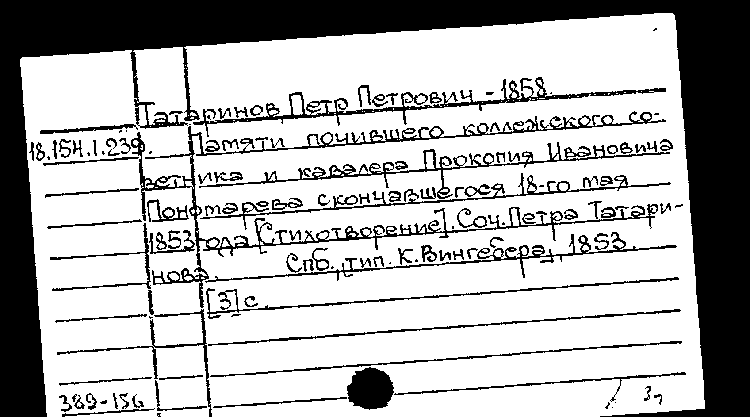 Татаринов, Петр Петрович, -1858.
18.154.1.239. Памяти почившего коллежского со-
ветника и кавалера Прокопия Ивановича
Пономарева скончавшегося 18-го мая
1853 года [Стихотворение]. Соч. Петра Татари-
нова. Спб., [тип. К. Вингебера], 1853.
[3] с.
389-156